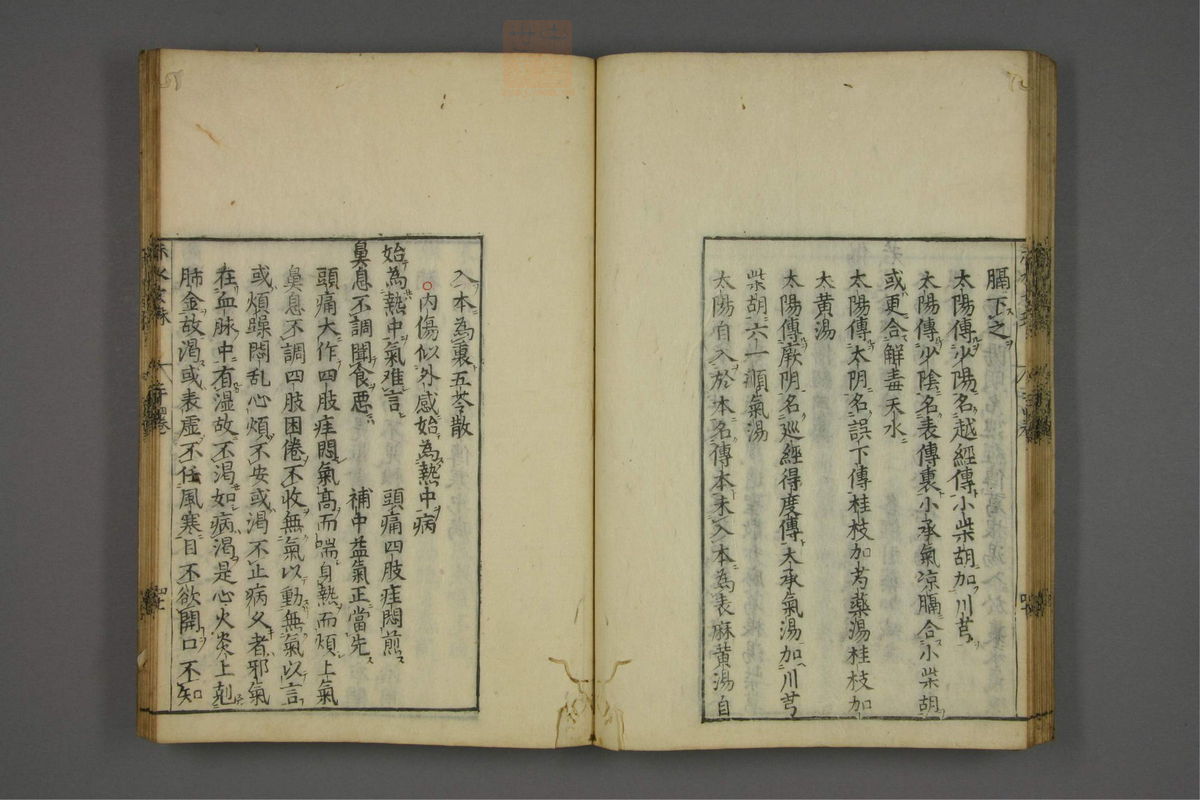 膈下之
太陽傳少陽名越經傳小柴胡加川芎
太陽傳少陰名表傳裏小承氣凉膈合小柴胡
或更合解毒天水
太陽傳太阴名誤下傳桂枝加芍藥湯桂枝加
大黄湯
太陽傳厥阴名巡經得度傳大承氣湯加川芎
柴胡六一順氣湯
太陽自入於本名傳本未入本為表麻黄湯自
入本為裏五苓散
○内傷似外感始為熱中病
始為熱中氣难言 頭痛四肢疰悶煎
鼻息不調聞食悪 補中益氣正當先
頭痛大作四肢疰悶氣高而喘身熱而煩上氣
鼻息不調四肢困倦不收無氣以動無氣以言
或煩躁悶乱心煩不安或渇不止病久者邪氣
在血脉中有湿故不渇如病渇是心火炎上剋
肺金故渇或表虚不任風寒目不欲開口不知